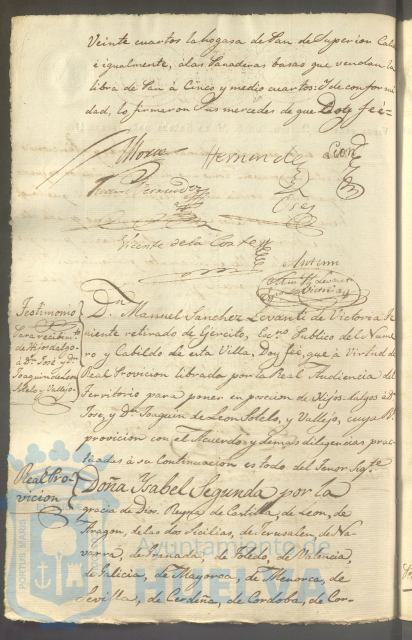 Veinte cuartos la hogasa de Pan de Superior Cali
é igualmente, á las Panaderas basas que vendan la
libra de Pan á Cinco y medio cuartos: Y de conformi
dad, lo firmaron Sus mercedes de que Doy fée=
Hernandez
Leon
Vicente de la Corte
Antemi
Testimonio
para recibim.to
de Hijosdalgo
á D.n José y D.n
Joaquin de Leon
Sotelo, y Vallejo.
D.n Manuel Sanchez Levanti de Victoria te
niente retirado de Exercito, Esc.no Publico del Nume
ro y Cabildo de esta Villa, Doy feé, que á Virtud de
Real Provicion librada por la Real Audiencia del
Territorio para poner en posecion de Hijos-dalgos á D.n
Jose, y D.n Joaquin de Leon Sotelo, y Vallejo, cuya R.l
provicion con el Acuerdo y demas diligencias prac
ticadas á su Continuacion es todo del Tenor sig.te
Real Pro
vicion
Doña Ysabel Segunda por la
gracia de Dios Reyna de Castilla, de Leon, de
Aragon, de las dos Sicilias, de Jerusalen, de Na-
varra, de Granada, de Toledo, de Valencia,
de Galicia, de Mayorca, de Menorca, de
Sevilla, de Cerdeña, de Cordoba, de Cor-
PORTUS MARIS
Ayuntamiento de
HUELVA